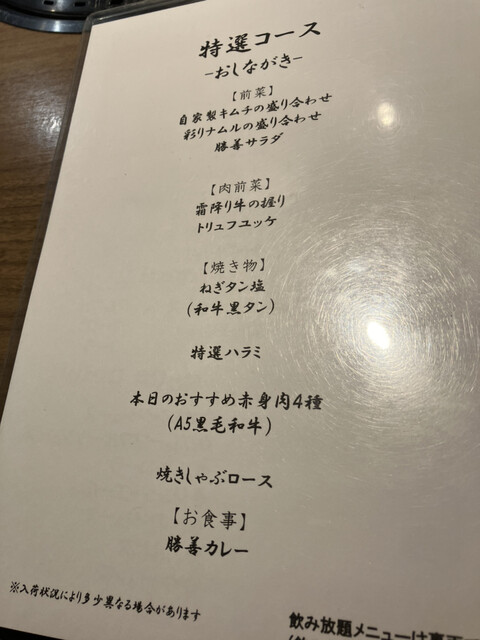 特選コース
-おしながき-
【前菜】
自家製キムチの盛り合わせ
彩りナムルの盛り合わせ
勝善サラダ
【肉前菜】
霜降り牛の握り
トリュフユッケ
【焼き物】
ねぎタン塩
(和牛黒タン)
特選ハラミ
本日のおすすめ赤身肉4種
(A5黒毛和牛)
焼きしゃぶロース
【お食事】
勝善カレー
※入荷状況により多少異なる場合があります
飲み放題メニューは裏